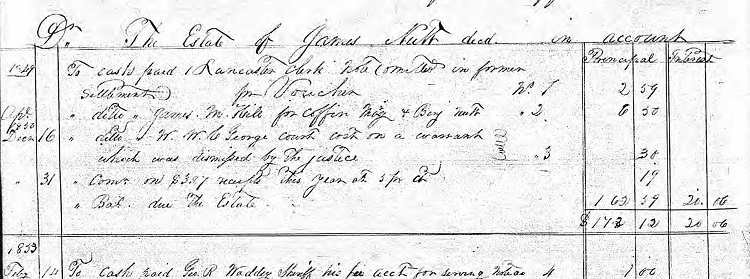 Dr. The Estate of James Nutt decd. in account
Principal Interest
1849 To cash paid Lancaster Clerk Note Omitted in former
Settlement pr Voucher No. 1 2 59
Apl. " ditto " James M. Hill for coffin & Benj Nutt " 2 6 50
1850
Decr 16 " ditto " W. W. C. George Court cost on a warrant
which was dismissed by the justice " 3 30
" 31 " Comr on $3.87 receipts this year at 5 pr ct 19
" Bal. due The Estate 162 59 20. 06
$172 12 20 06
1833
Feby 14 To cash paid Geo. R. Waddey Sheriff his fee acct for serving notice 4 1 00